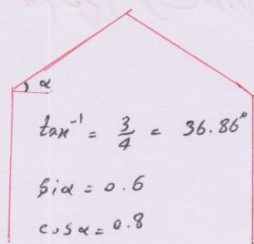 α
tan⁻¹ = 3/4 = 36.86°
Sinα = 0.6
cosα = 0.8